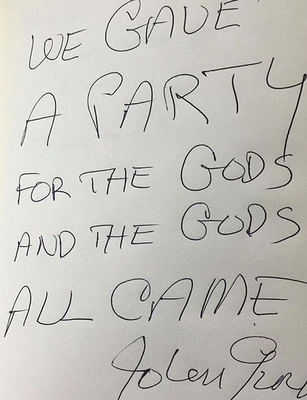 WE GAVE
A PARTY
FOR THE GODS
AND THE GODS
ALL CAME